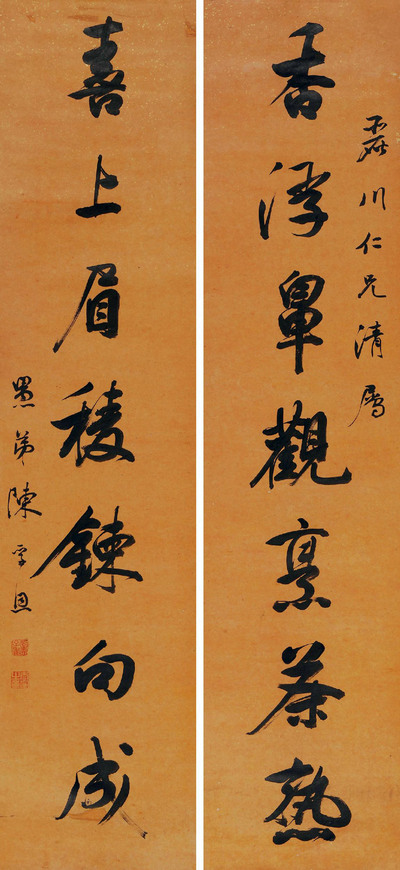 磊川仁兄清屬
香浮鼻觀烹茶熟
喜上眉稜鍊句成
愚弟陳孚恩